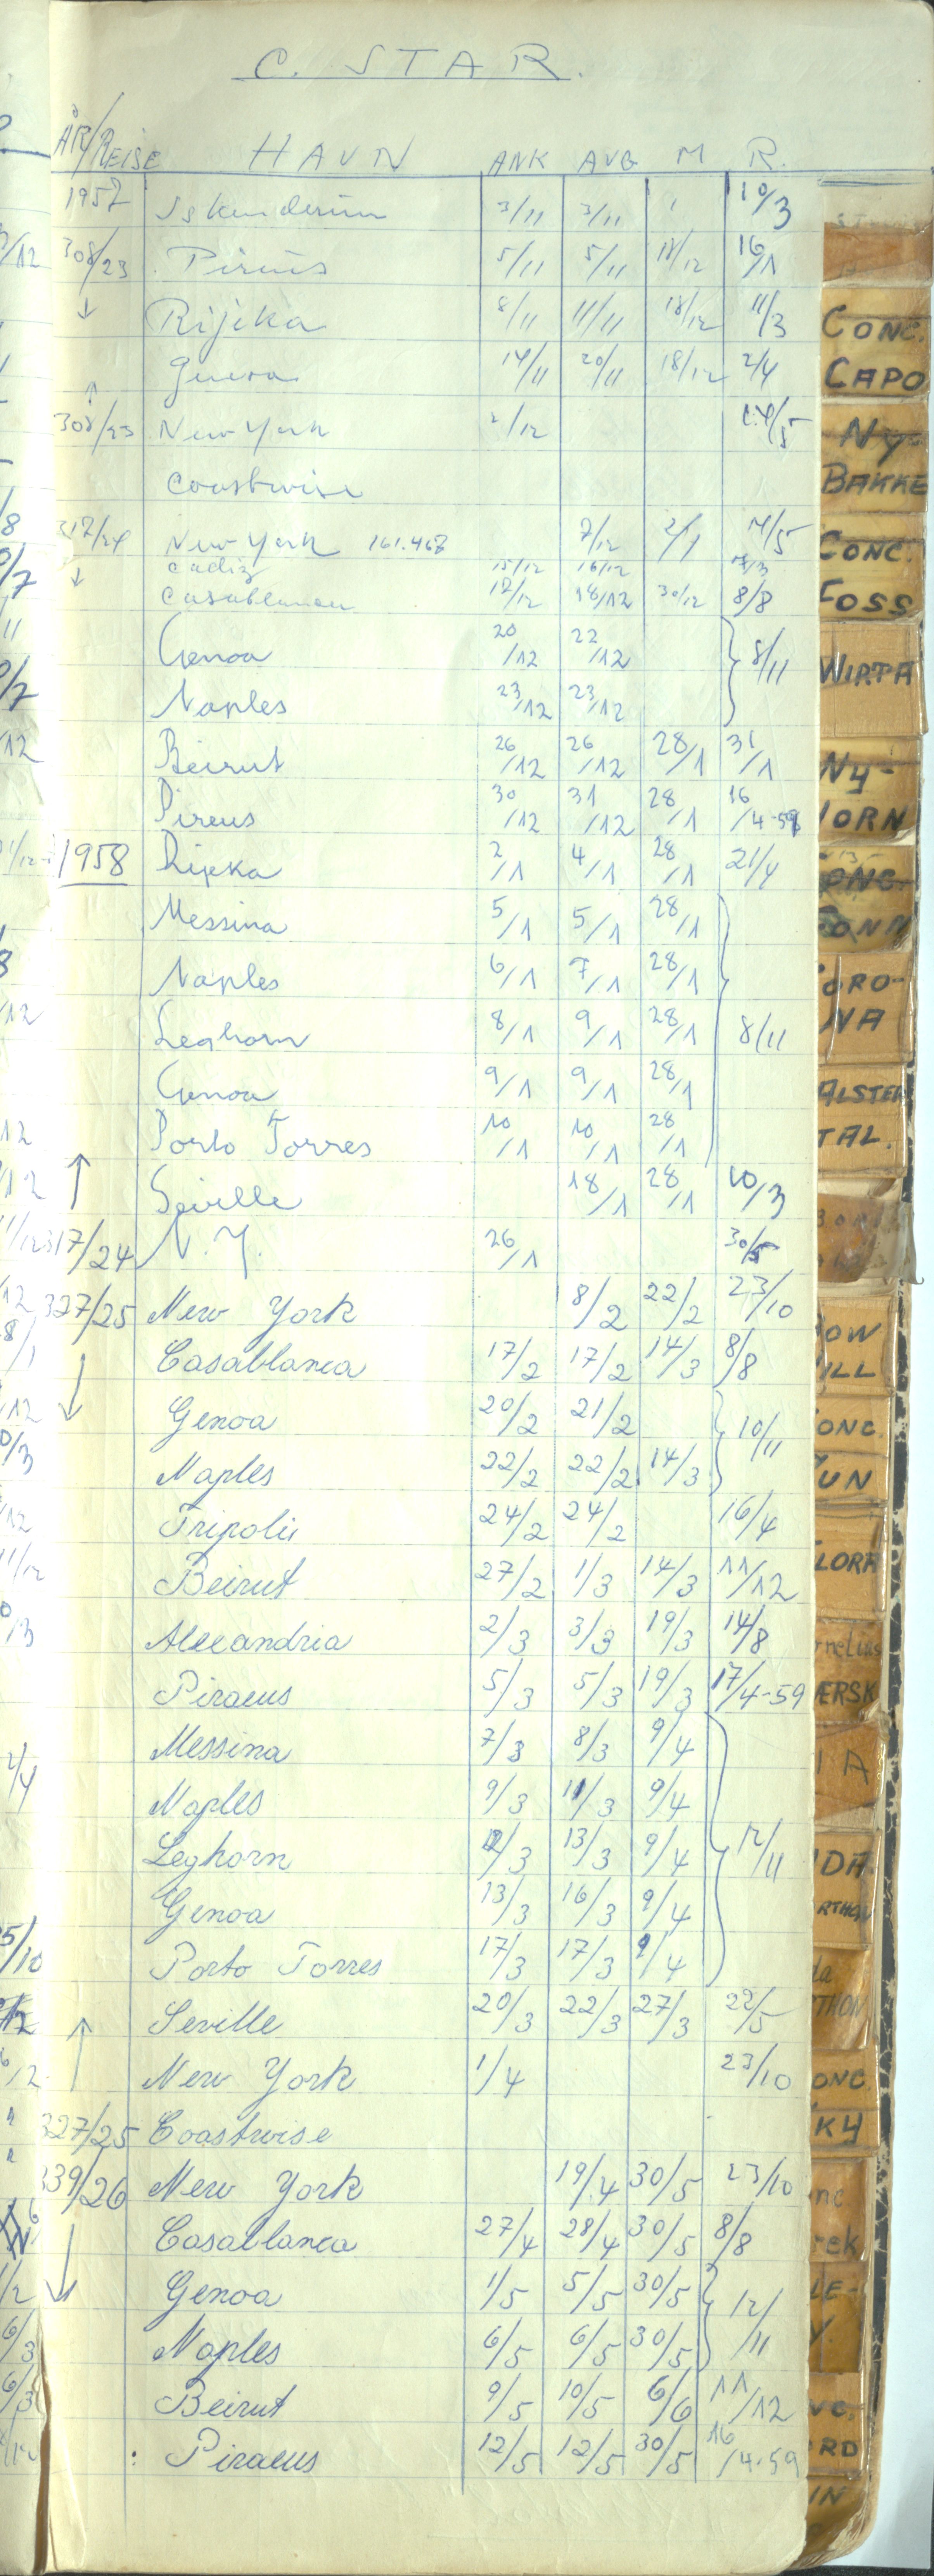 C. STAR.
ÅR/REISE HAVN ANK AVG M R.
1957 Iskenderun 3/11 3/11 10/3
308/23 Pireus 5/11 5/11 18/12 16/1
↓ Rijeka 8/11 11/11 18/12 11/3
Genova 14/11 20/11 18/12 2/4
↑
308/23 New York 2/12
Coastwise
317/24 New York 161.468 7/12 2/1 14/5
↓ Cadiz 15/12 16/12
Casablanca 17/12 18/12 30/12 8/8
Genoa 20/12 22/12 } 8/11
Naples 23/12 23/12
Beirut 26/12 26/12 28/1 31/1
Pireus 30/12 31/12 28/1 16/4-59
1958 Rijeka 2/1 4/1 28/1 21/4
Messina 5/1 5/1 28/1
Naples 6/1 7/1 28/1
Leghorn 8/1 9/1 28/1 } 8/11
Genoa 9/1 9/1 28/1
Porto Torres 10/1 10/1 28/1
↑ Seville 18/1 28/1 10/3
317/24 N.Y. 26/1 30/5
327/25 New York 8/2 22/2 23/10
↓ Casablanca 17/2 17/2 14/3 8/8
Genoa 20/2 21/2 } 10/11
Naples 22/2 22/2 14/3
Tripolis 24/2 24/2 16/4
Beirut 27/2 1/3 14/3 11/12
Alexandria 2/3 3/3 19/3 14/8
Piraeus 5/3 5/3 19/3 17/4-59
Messina 7/3 8/3 9/4
Naples 9/3 11/3 9/4
Leghorn 12/3 13/3 9/4 } 12/11
Genoa 13/3 16/3 9/4
Porto Torres 17/3 17/3 9/4
Seville 20/3 22/3 27/3 22/5
↑ New York 1/4 23/10
327/25 Coastwise
339/26 New York 19/4 30/5 23/10
↓ Casablanca 27/4 28/4 30/5 8/8
Genoa 1/5 5/5 30/5 } 12/11
Naples 6/5 6/5 30/5
Beirut 9/5 10/5 6/6 11/12
Piraeus 12/5 12/5 30/5 16/4-59
CONC.
CAPO
NY-
BAKKE
CONC.
FOSS
WIRTA
NY-
ORO-
NA
ALSTER
TAL.